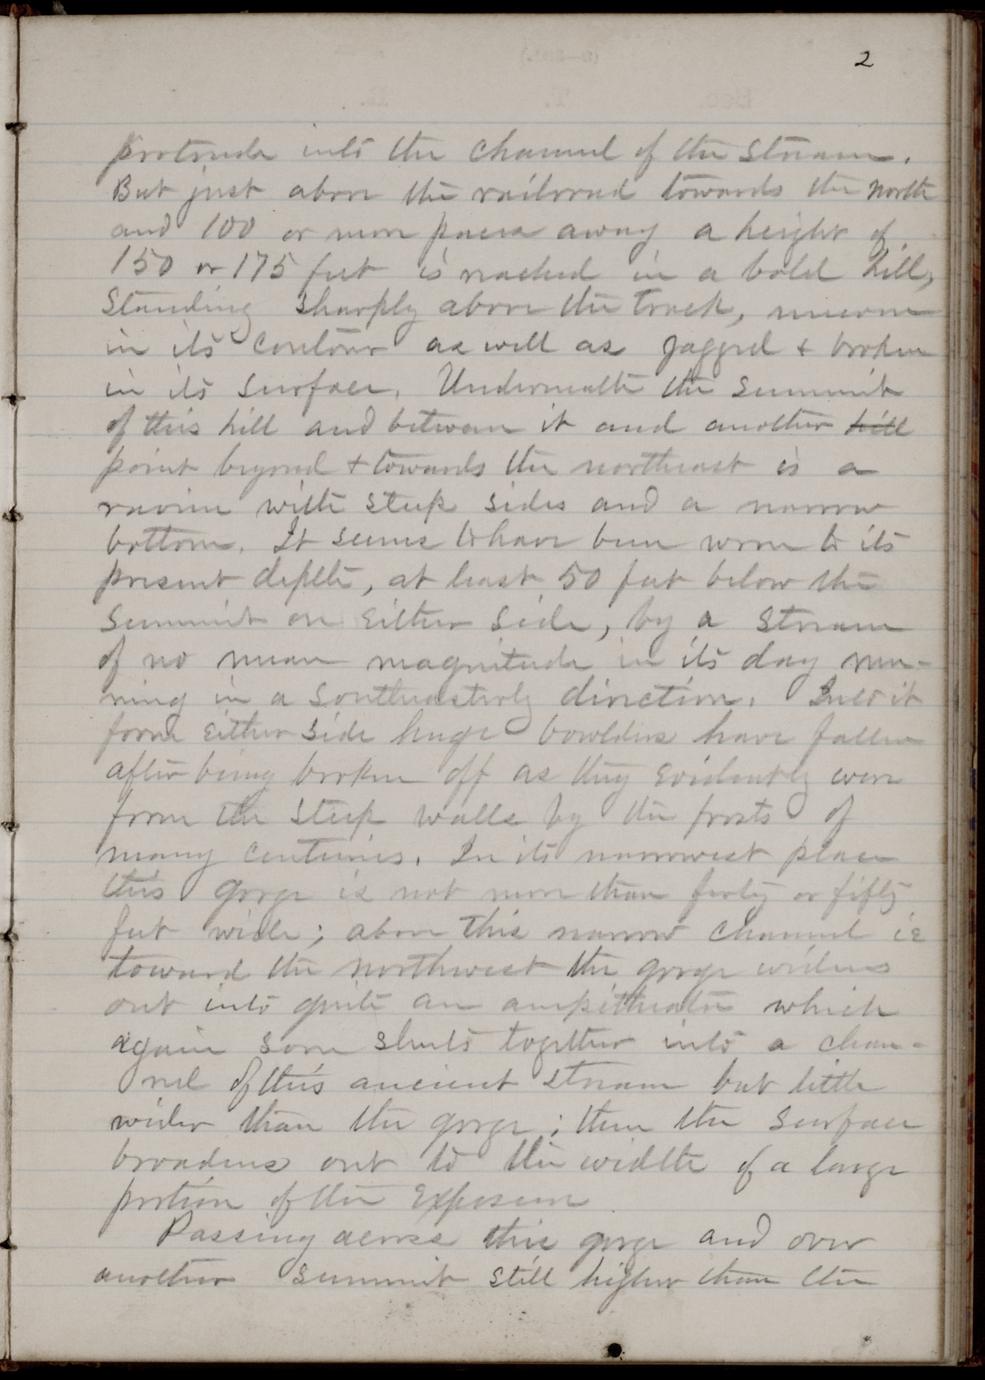 2
protrude into the channel of the stream.
But just above the railroad towards the north
and 100 or more paces away a height of
150 or 175 feet is reached in a bold hill,
standing sharply above the track, uneven
in its contour as well as jagged & broken
in its surface. Underneath the summit
of this hill and between it and another hill
point beyond & towards the northeast is a
ravine with steep sides and a narrow
bottom. It seems to have been worn to its
present depth, at least 50 feet below the
summit on either side, by a stream
of no mean magnitude in its day run-
ning in a southeasterly direction. Into it
form either side huge bowlders have fallen
after being broken off as they evidently were
form the steep walls by the frosts of
many centuries. In its narrowest place
this gorge is not more than forty or fifty
feet wide; above this narrow channel ie
toward the northwest the gorge widens
out into quite an ampitheatre which
again soon shuts together into a chan-
nel of this ancient stream but little
wider than the gorge; then the surface
broadens out to the width of a large
portion of the exposure
Passing across this gorge and over
another summit still higher than the